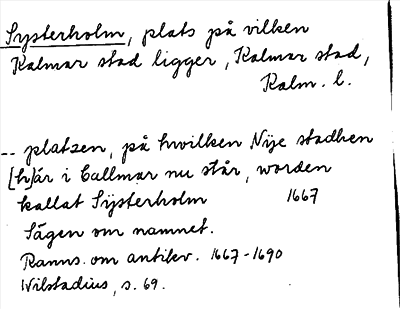 Systerholm, plats på vilken
Kalmar stad ligger, Kalmar stad,
Kalm. l.
-- platzen, på hwilken Nije stadhen
[h]är i Callmar nu står, worden
kallat Sÿsterholm 1667
Sägen om namnet.
Ranns. om antikv. 1667-1690
Wilstadius, s. 69.